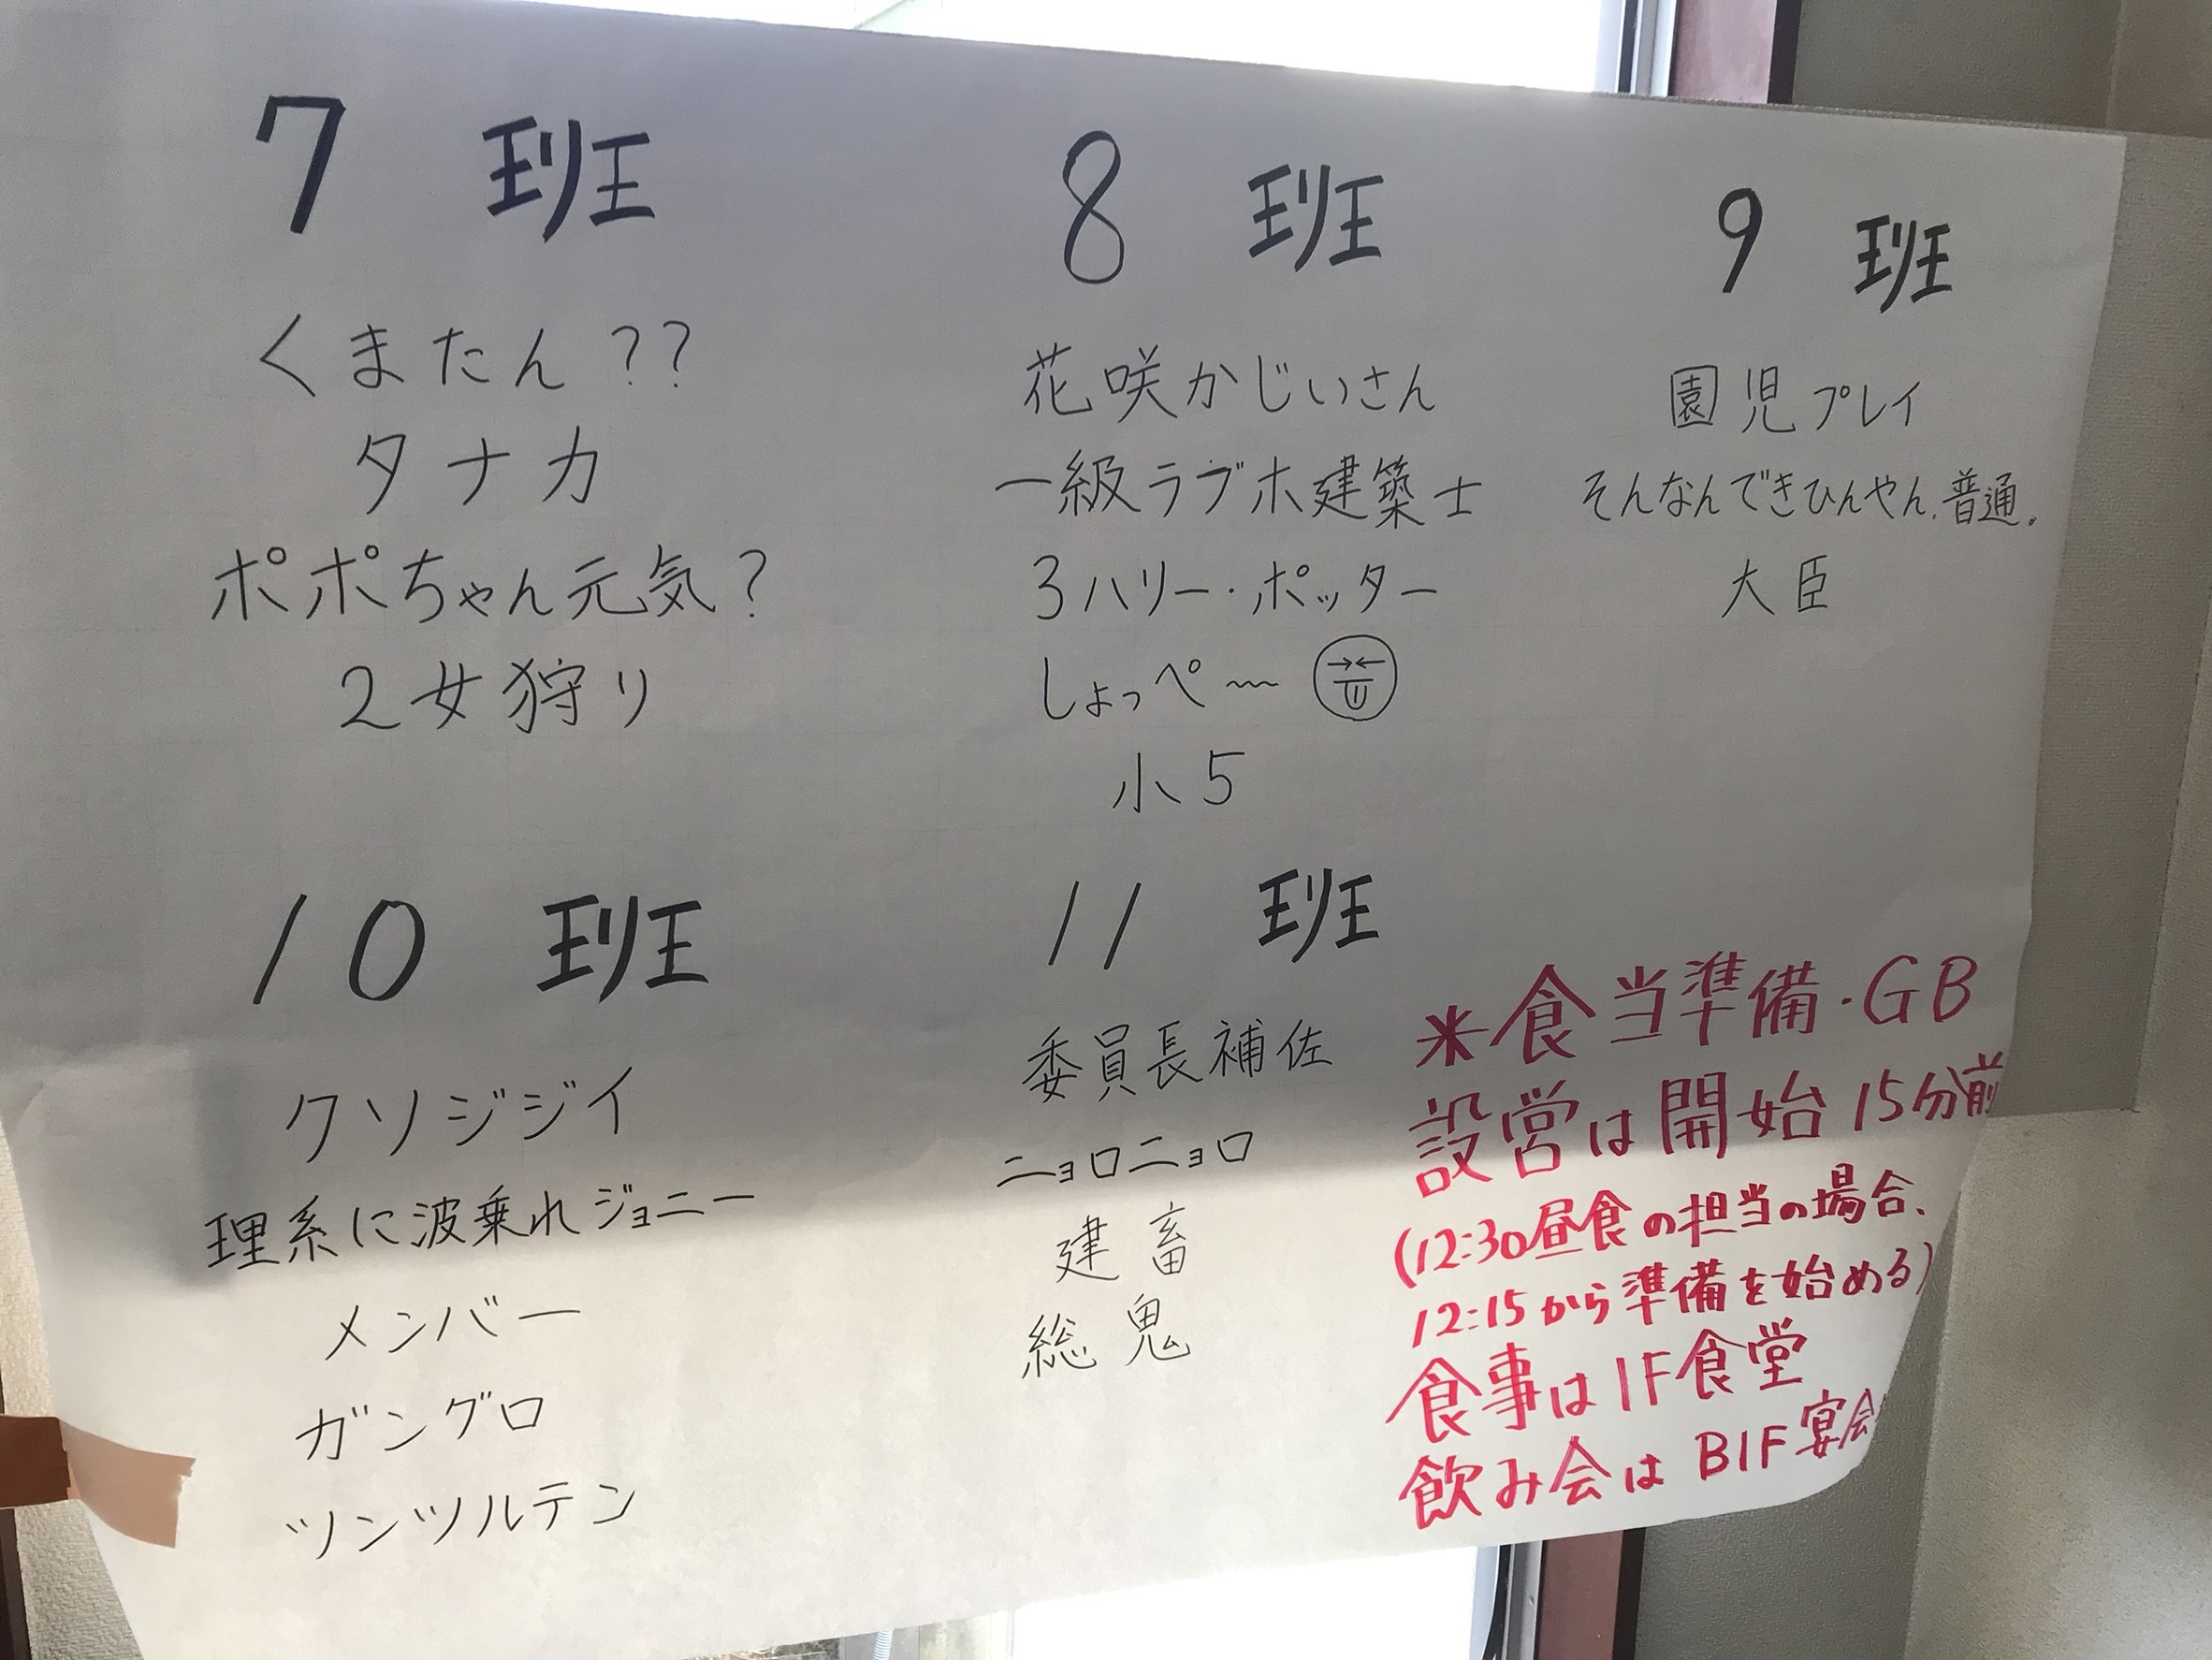 7 班
くまたん??
タナカ
ポポちゃん元気?
2女狩り
8 班
花咲かじいさん
一級ラブホ建築士
3ハリー・ポッター
しょっぺ〰
小5
9 班
園児プレイ
そんなんできひんやん、普通。
大臣
10 班
クソジジイ
理系に波乗れジョニー
メンバー
ガングロ
ツンツルテン
11 班
委員長補佐
ニョロニョロ
建畜
総鬼
米食当準備・GB
設営は開始15分前
(12:30昼食の担当の場合、
12:15から準備を始める)
食事は1F食堂
飲み会はB1F宴会